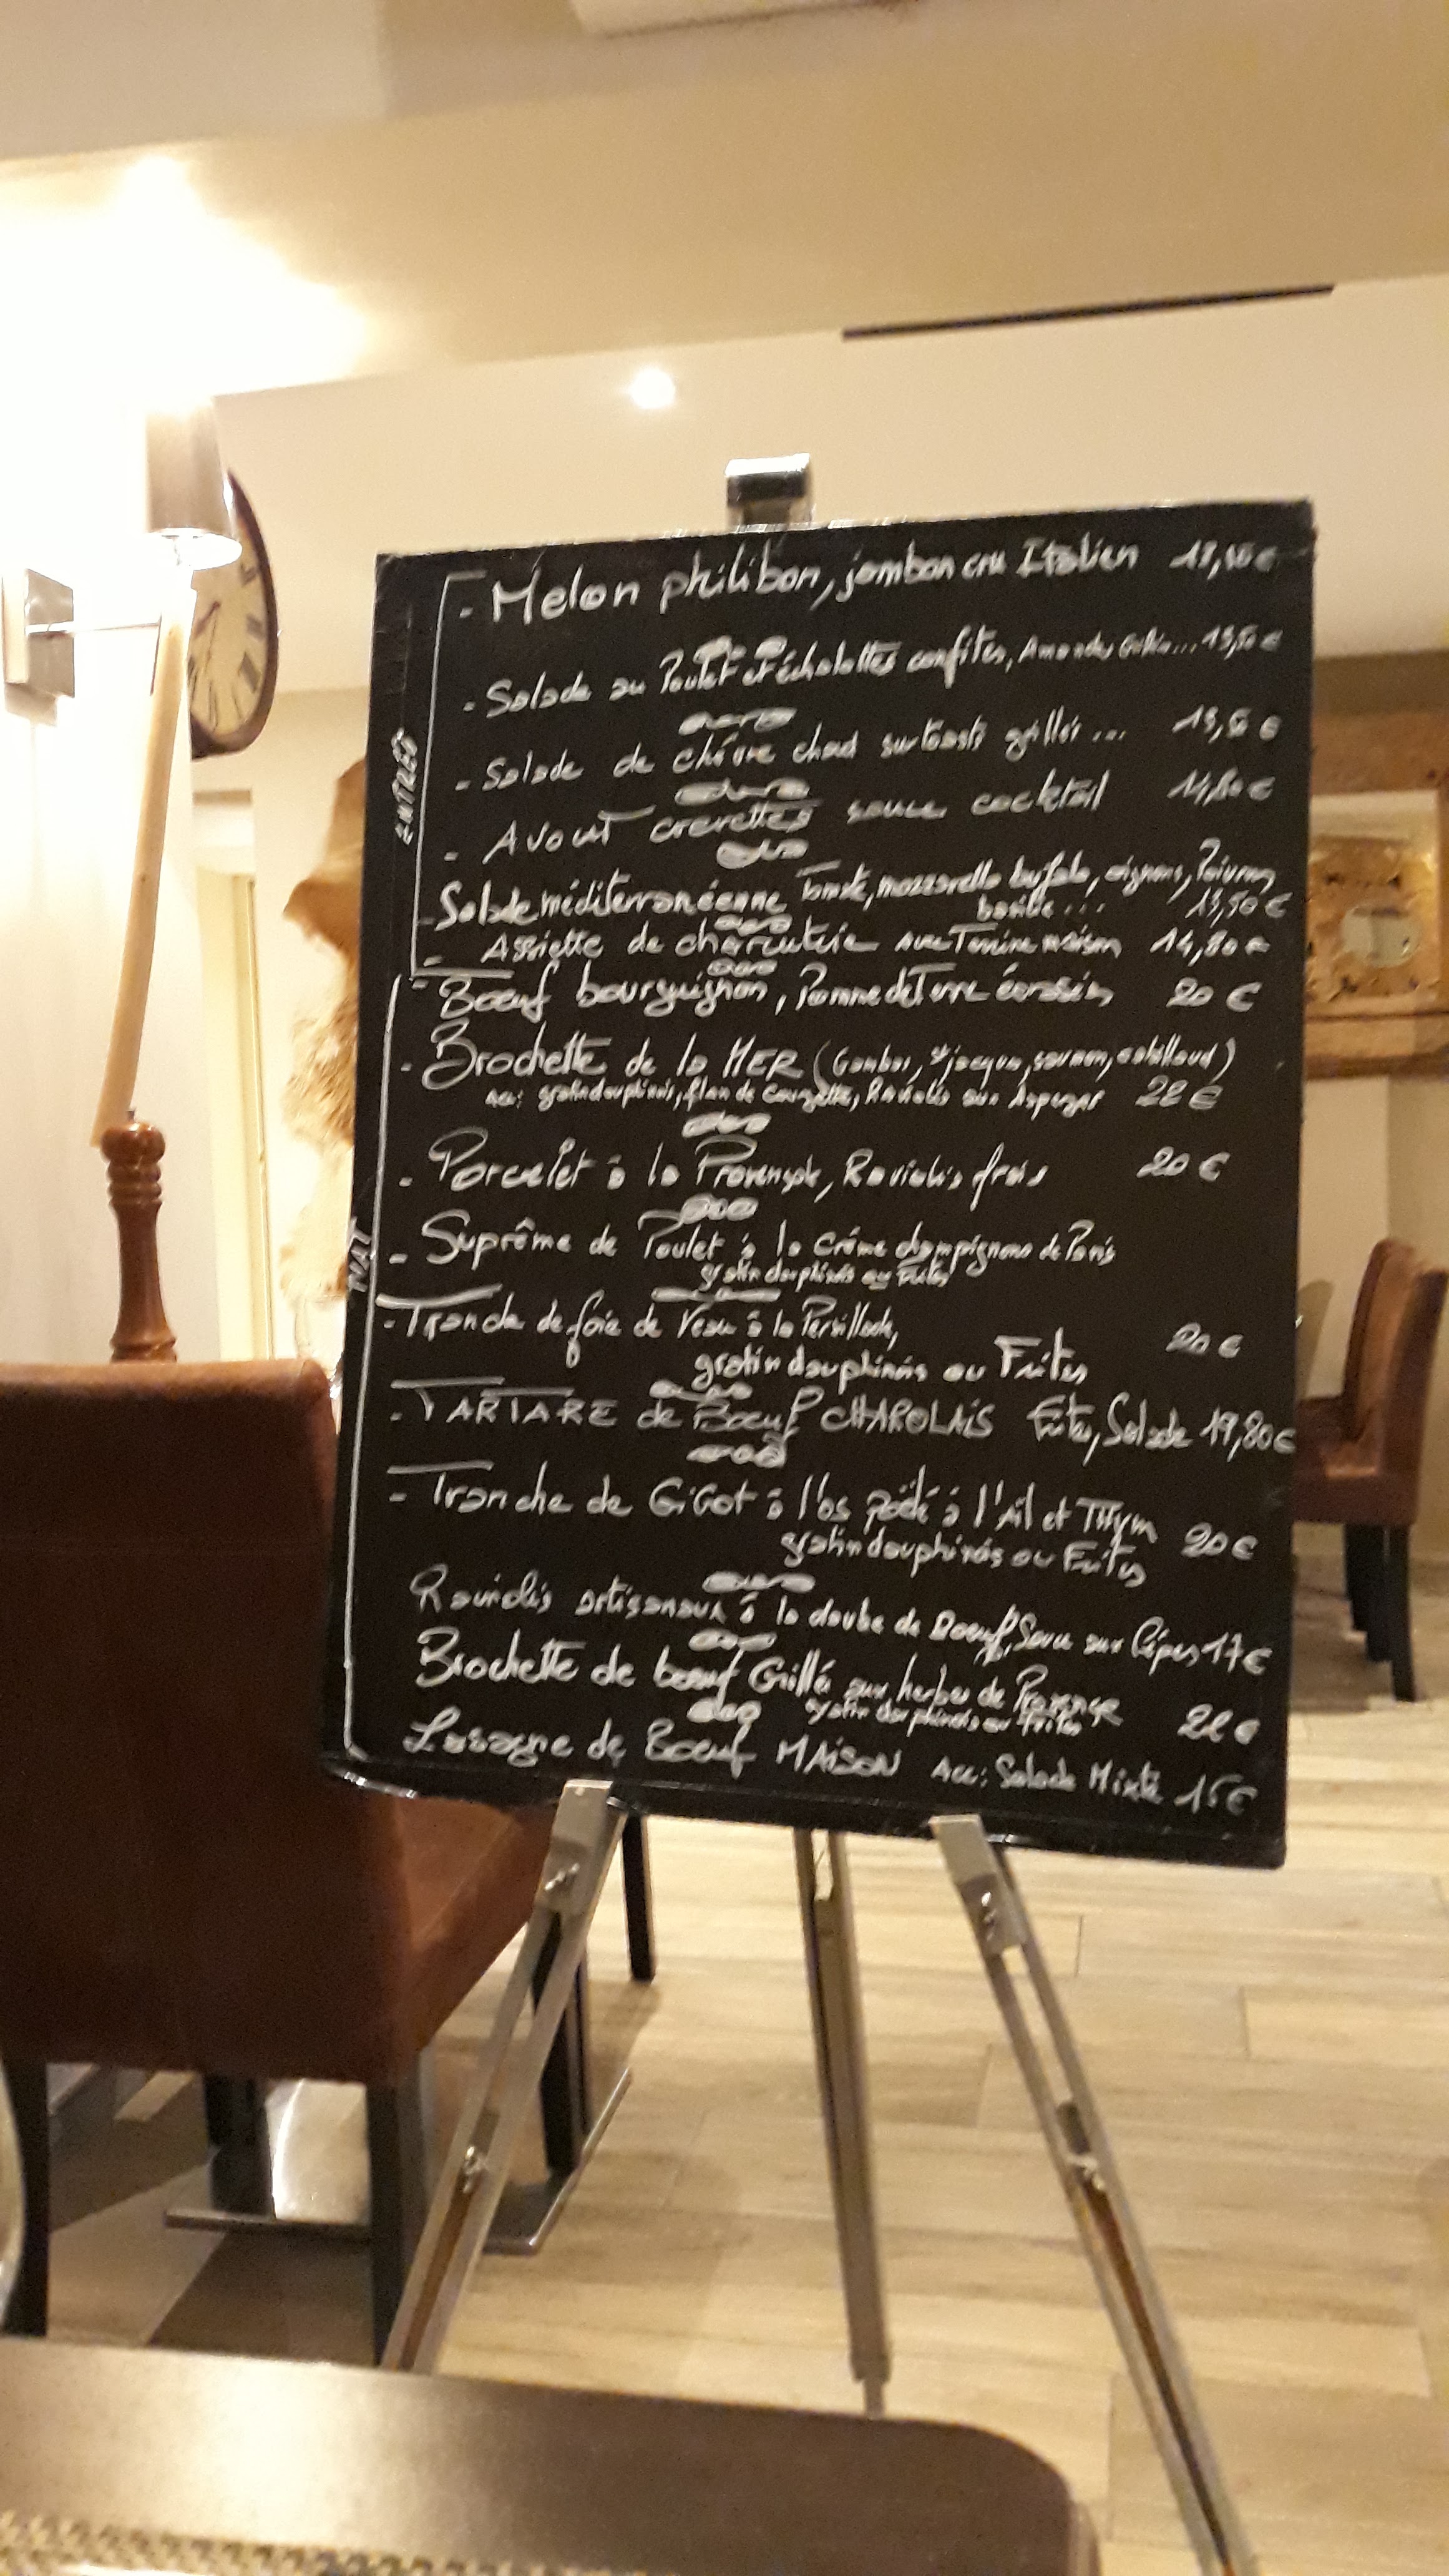 ENTRÉES
- Melon philibon, jambon cru Italien
- Salade au Poulet et échalottes confites, Amandes ... 13,50 €
- Salade de chèvre chaud sur toasts grillés ... 13,50 €
- Avocat crevettes sauce cocktail 14,80 €
- Salade méditerranéenne Tomate, mozzarella bufala, oignons, Poivrons
basilic ... 13,50 €
- Assiette de charcuterie avec Terrine maison 14,80 €
- Bœuf bourguignon, Pomme de Terre écrasées 20 €
- Brochette de la MER (Gambas, St jacques, saumon, cabillaud)
Acc: gratin dauphinois, flan de courgette, Raviolis aux Asperges 22 €
- Porcelet à la Provençale, Raviolis frais 20 €
- Suprême de Poulet à la crème champignons de Paris
gratin dauphinois ou Frites
- Tranche de foie de Veau à la Persillade, 20 €
gratin dauphinois ou Frites
- TARTARE de Bœuf CHAROLAIS Frites, Salade 19,80 €
- Tranche de GiGot à l'os poêlé à l'Ail et THym 20 €
gratin dauphinois ou Frites
Raviolis artisanaux à la daube de Boeuf, Sauce aux Cèpes 17 €
Brochette de bœuf Grillé aux herbes de Provence 22 €
gratin dauphinois ou Frites
Lasagne de Bœuf MAISON Acc: Salade Mixte